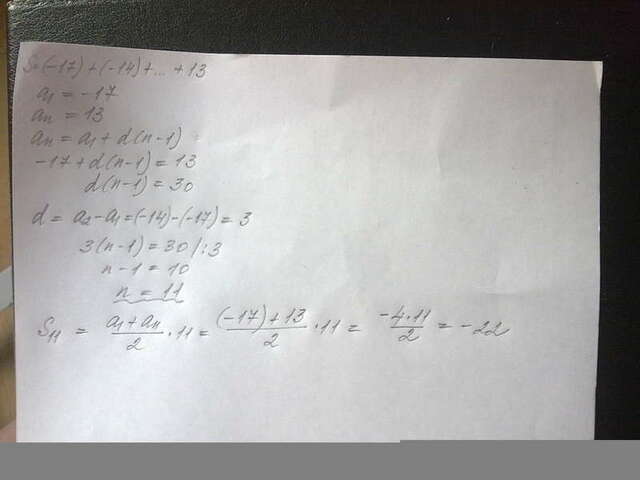 S=(-17)+(-14)+...+13
a₁ = -17
aₙ = 13
aₙ = a₁ + d(n-1)
-17+d(n-1) = 13
d(n-1) = 30
d = a₂-a₁=(-14)-(-17) = 3
3(n-1) = 30 /:3
n-1 = 10
n = 11
S₁₁ = \frac{a₁+a₁₁}{2} · 11 = \frac{(-17)+13}{2} · 11 = \frac{-4·11}{2} = -22